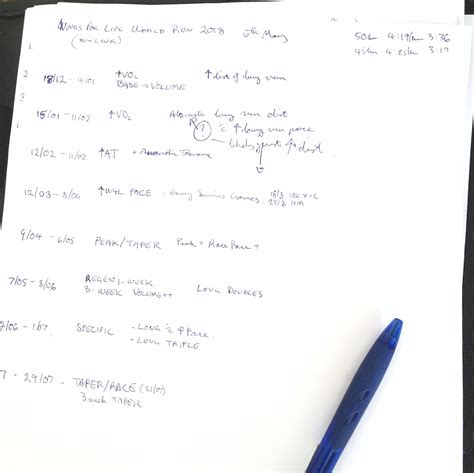 WINGS FOR LIFE WORLD RUN 2018 6th May
50km 4:19/km 3:36
45km 4:25/km 3:19
1.
2. 18/12 - 14/01 ↑VOL ↑ dist of long run
BASE → VOLUME
3. 15/01 - 11/02 ↑VO2 long run dist
? ↑ long run pace
↑ dist
12/02 - 11/02 ↑AT + Tolerance
12/03 - 8/04 ↑W4L PACE - Games 18/3 10K X-C
25/3 HM
9/04 - 6/05 PEAK/TAPER Peak = Race Pace +
7/05 - 3/06 REGEN 1-WEEK
3-WEEK VOLUME++ LONG DOUBLES
/06 - 1/07 SPECIFIC - LONG ↑ Pace
- LONG TRIPLE
- 29/07 - TAPER/RACE (21/07)
3 week TAPER